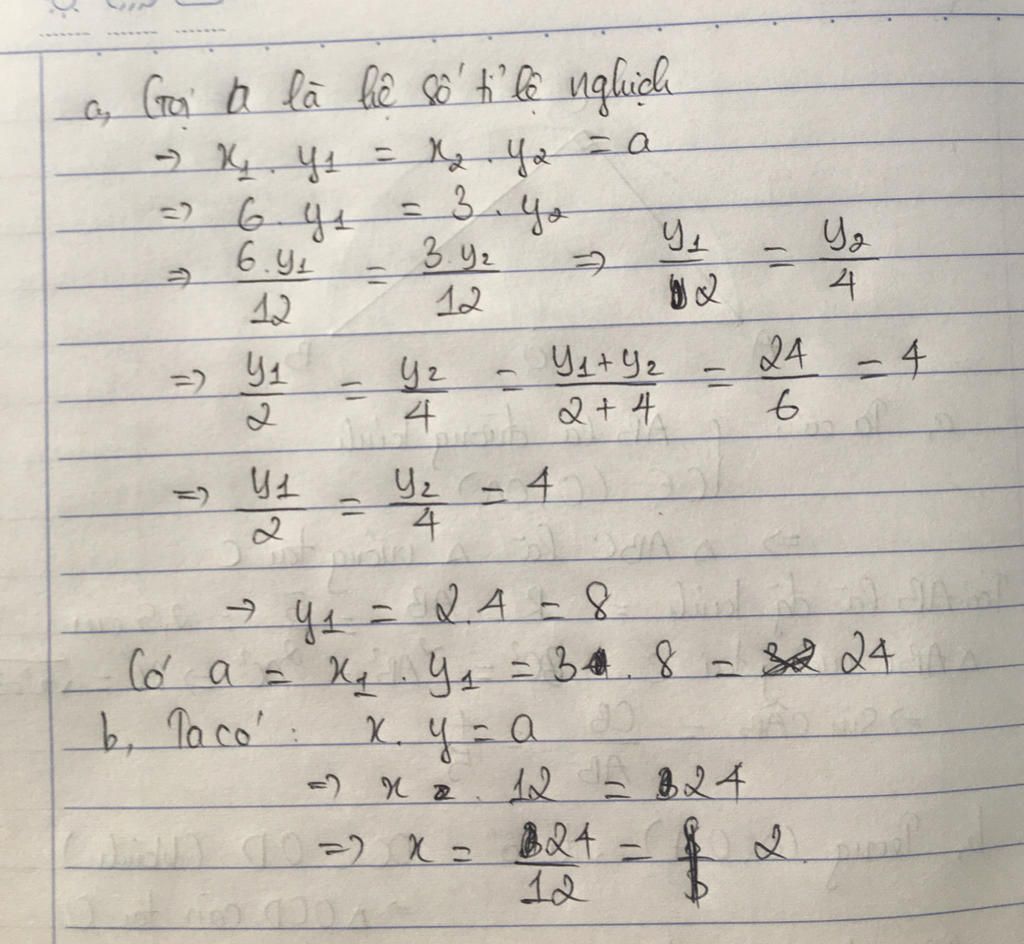 a, Gọi a là hệ số tỉ lệ nghịch
→ x₁ . y₁ = x₂ . y₂ = a
=> 6 . y₁ = 3 . y₂
=> 6.y₁/12 = 3.y₂/12 => y₁/2 = y₂/4
=> y₁/2 = y₂/4 = y₁+y₂/2+4 = 24/6 = 4
=> y₁/2 = y₂/4 = 4
→ y₁ = 2.4 = 8
Có a = x₁ . y₁ = 3 . 8 = 24
b, Ta có : x. y = a
=> x . 12 = 24
=> x = 24/12 = 2